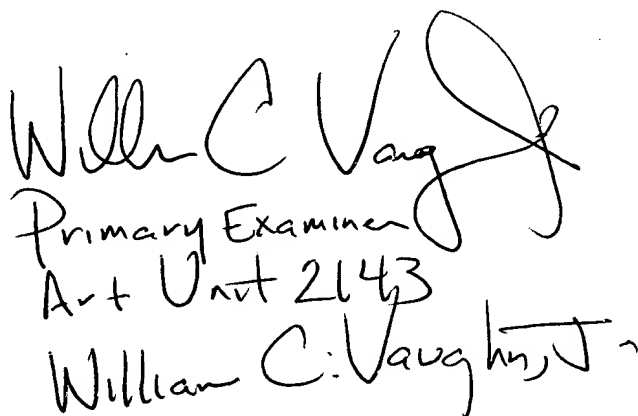 Willm C Vaug Jr
Primary Examiner
Art Unit 2143
William C. Vaughn, Jr